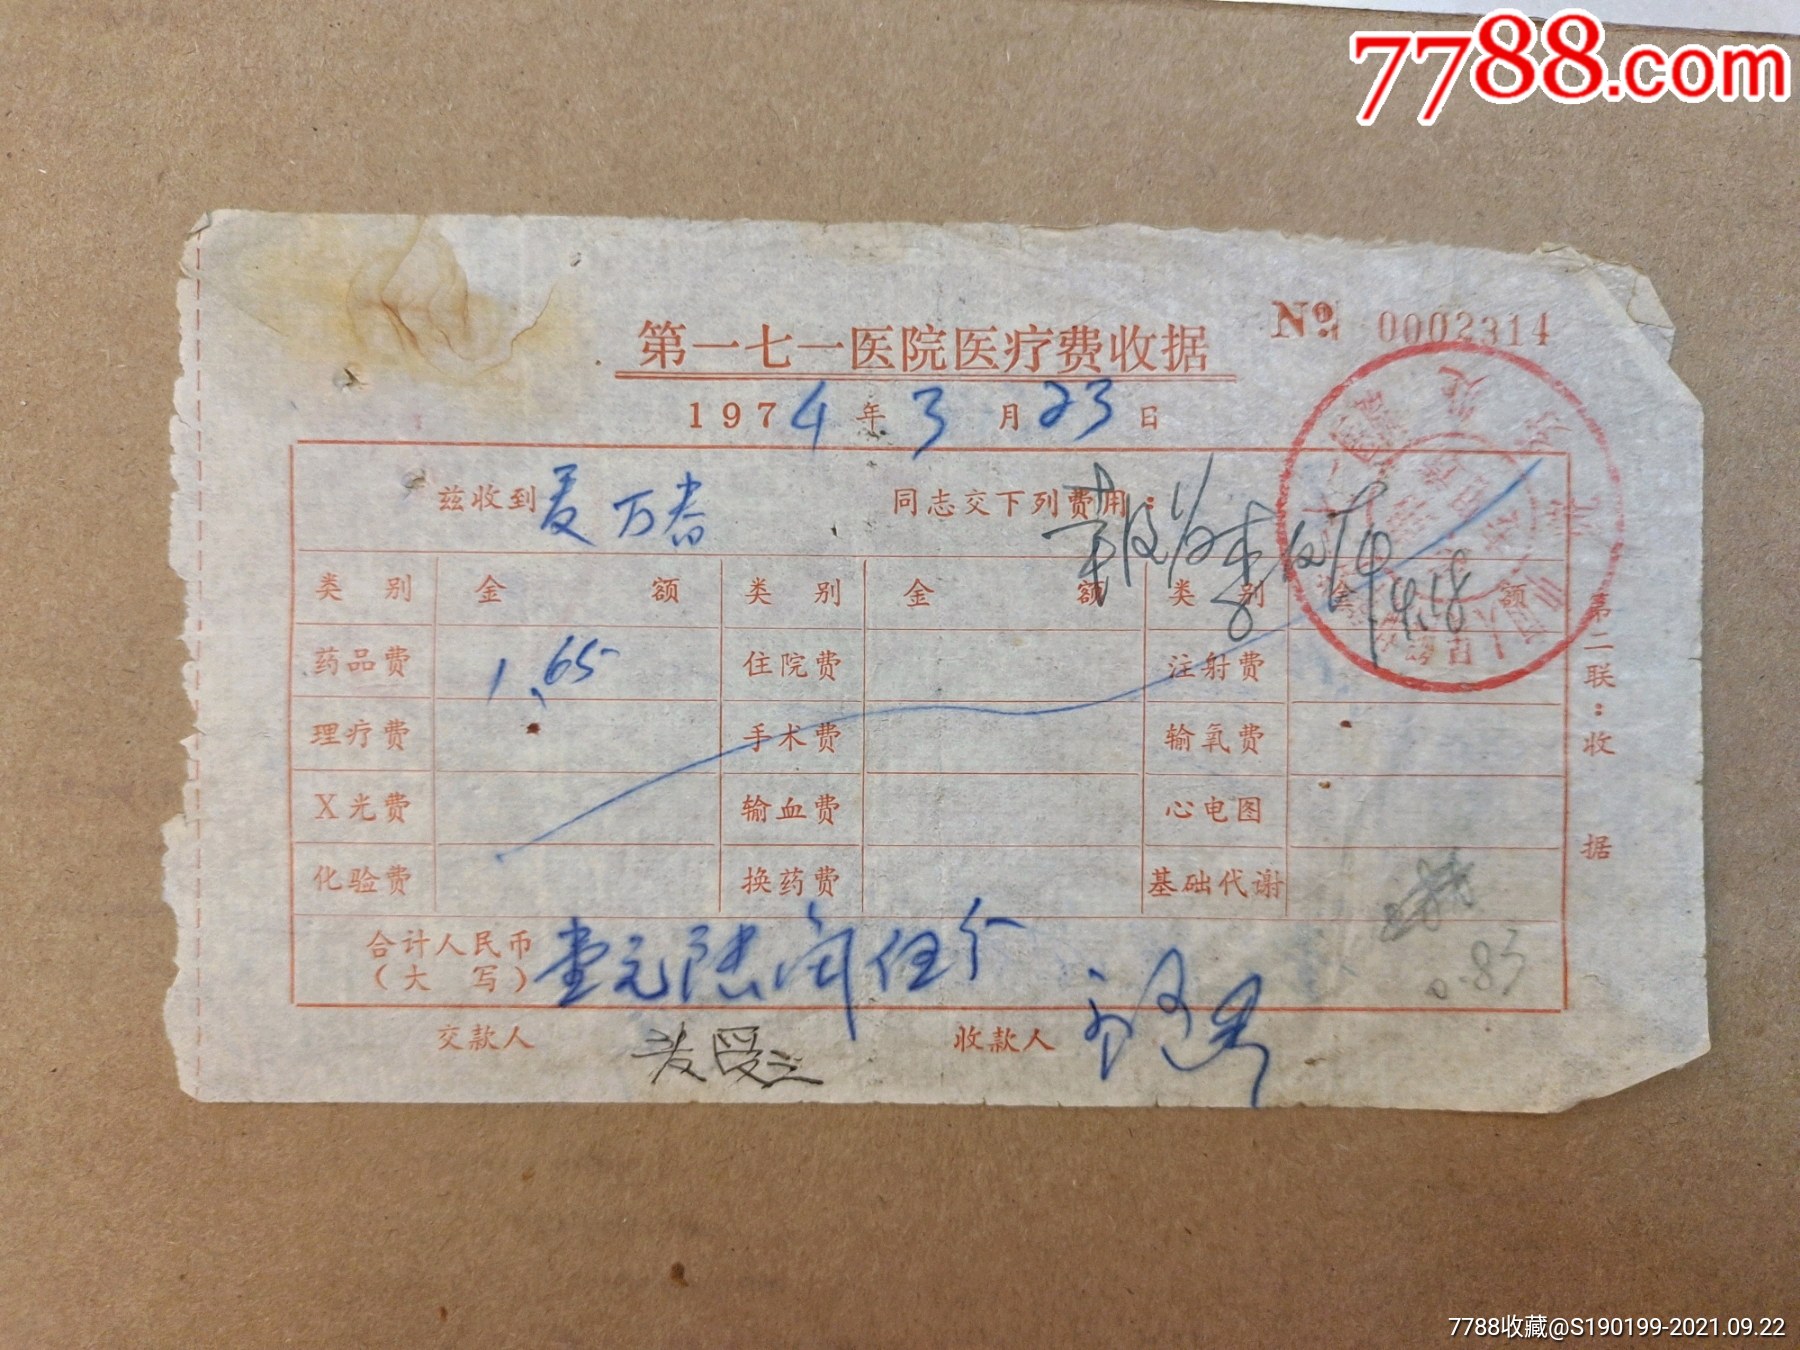 7788.com
第一七一医院医疗费收据
No. 0002314
1974年3月23日
兹收到 麦万春 同志交下列费用:
类别 金额 类别 金额 类别 金额
药品费 1.65 住院费 注射费
理疗费 手术费 输氧费
X光费 输血费 心电图
化验费 换药费 基础代谢
合计人民币
(大写) 壹元陆角伍分
0.83
交款人 收款人
4.18
第二联:收据
7788收藏@S190199-2021.09.22